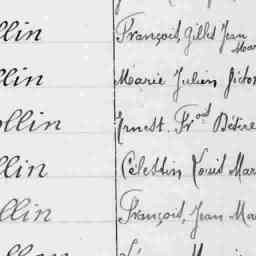 llin François, Gilles Jean
Mar
llin Marie Julien Victor
ollin Ernest. Frçois Désiré
llin Célestin Louis Mar
ollin François, Jean Ma